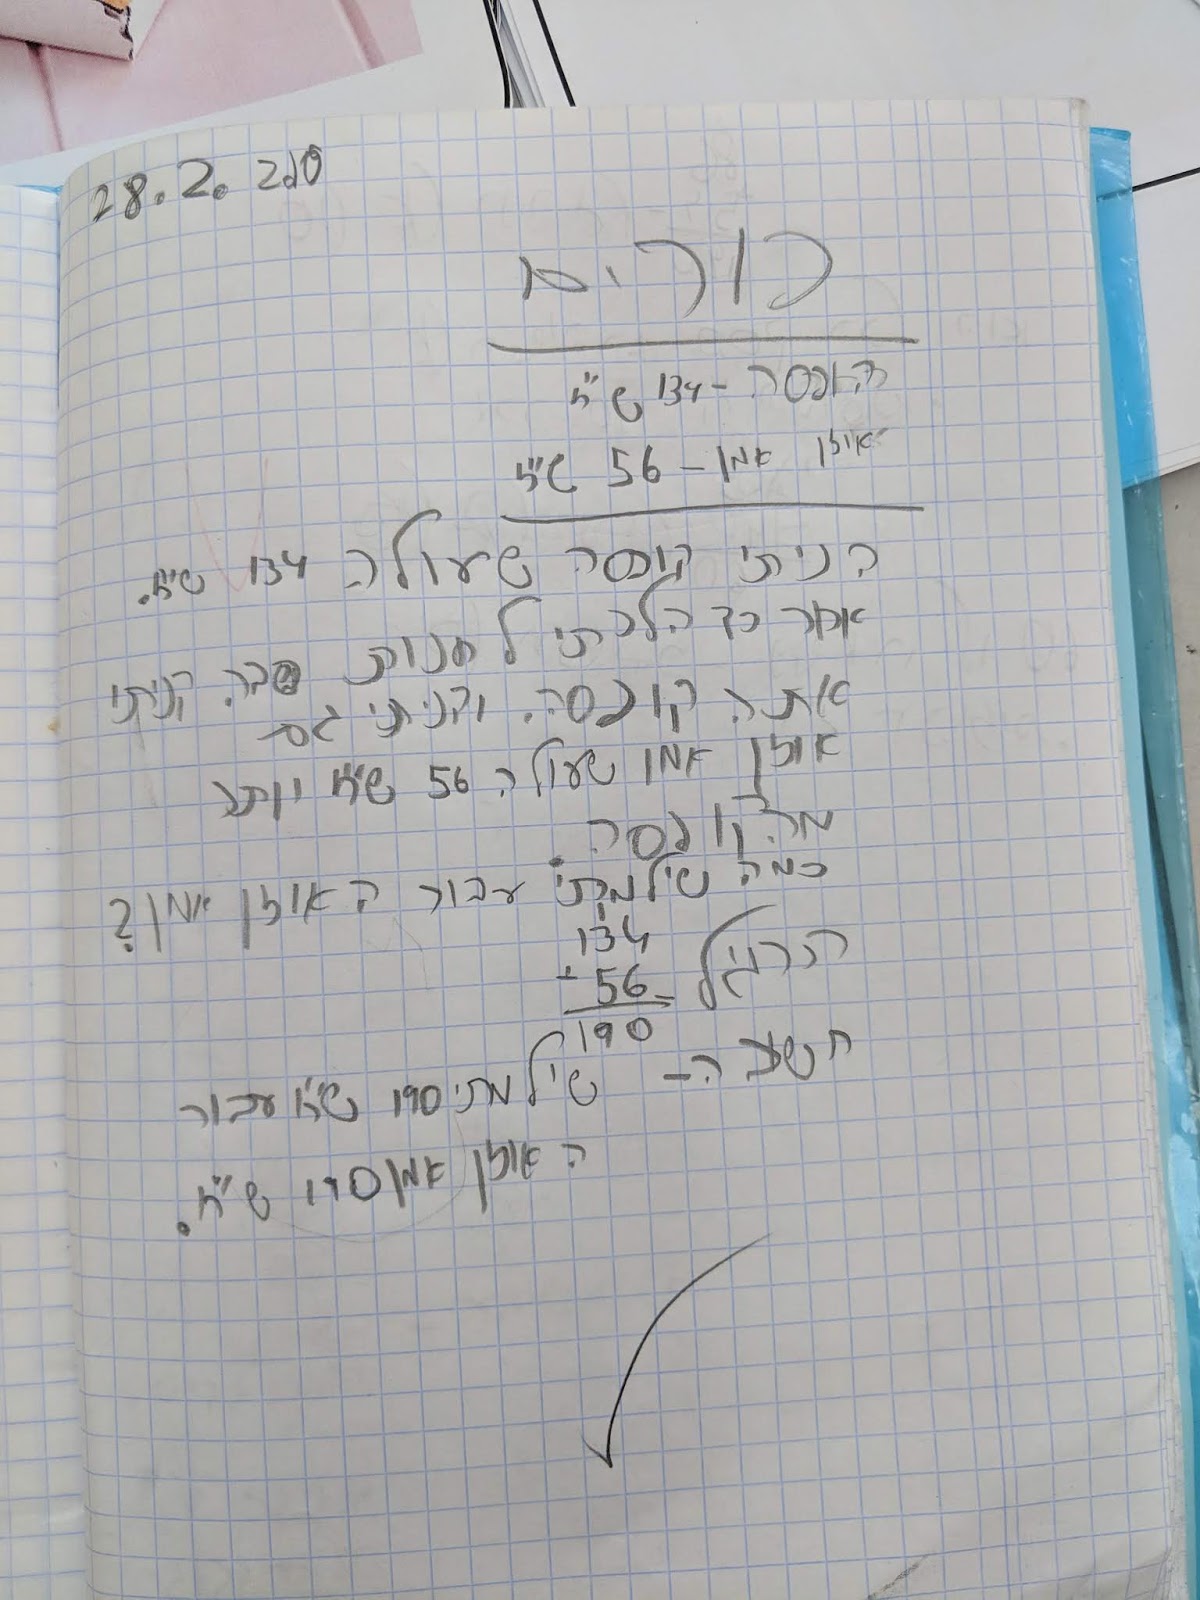 28.2. סגב
פורים
קופסה - 134 ש"ח
אוזן המן - 56 ש"ח
קניתי קופסה שעולה 134 ש"ח.
אחר כך הלכתי לחנות קניתי
את הקופסה. וקניתי גם
אוזן אמן שעולה 56 ש"ח יותר
מהקופסה.
כמה שילמתי עבור האוזן אמן?
134
+ 56
190
שילמתי 190 ש"ח עבור
האוזן אמן 190 ש"ח.